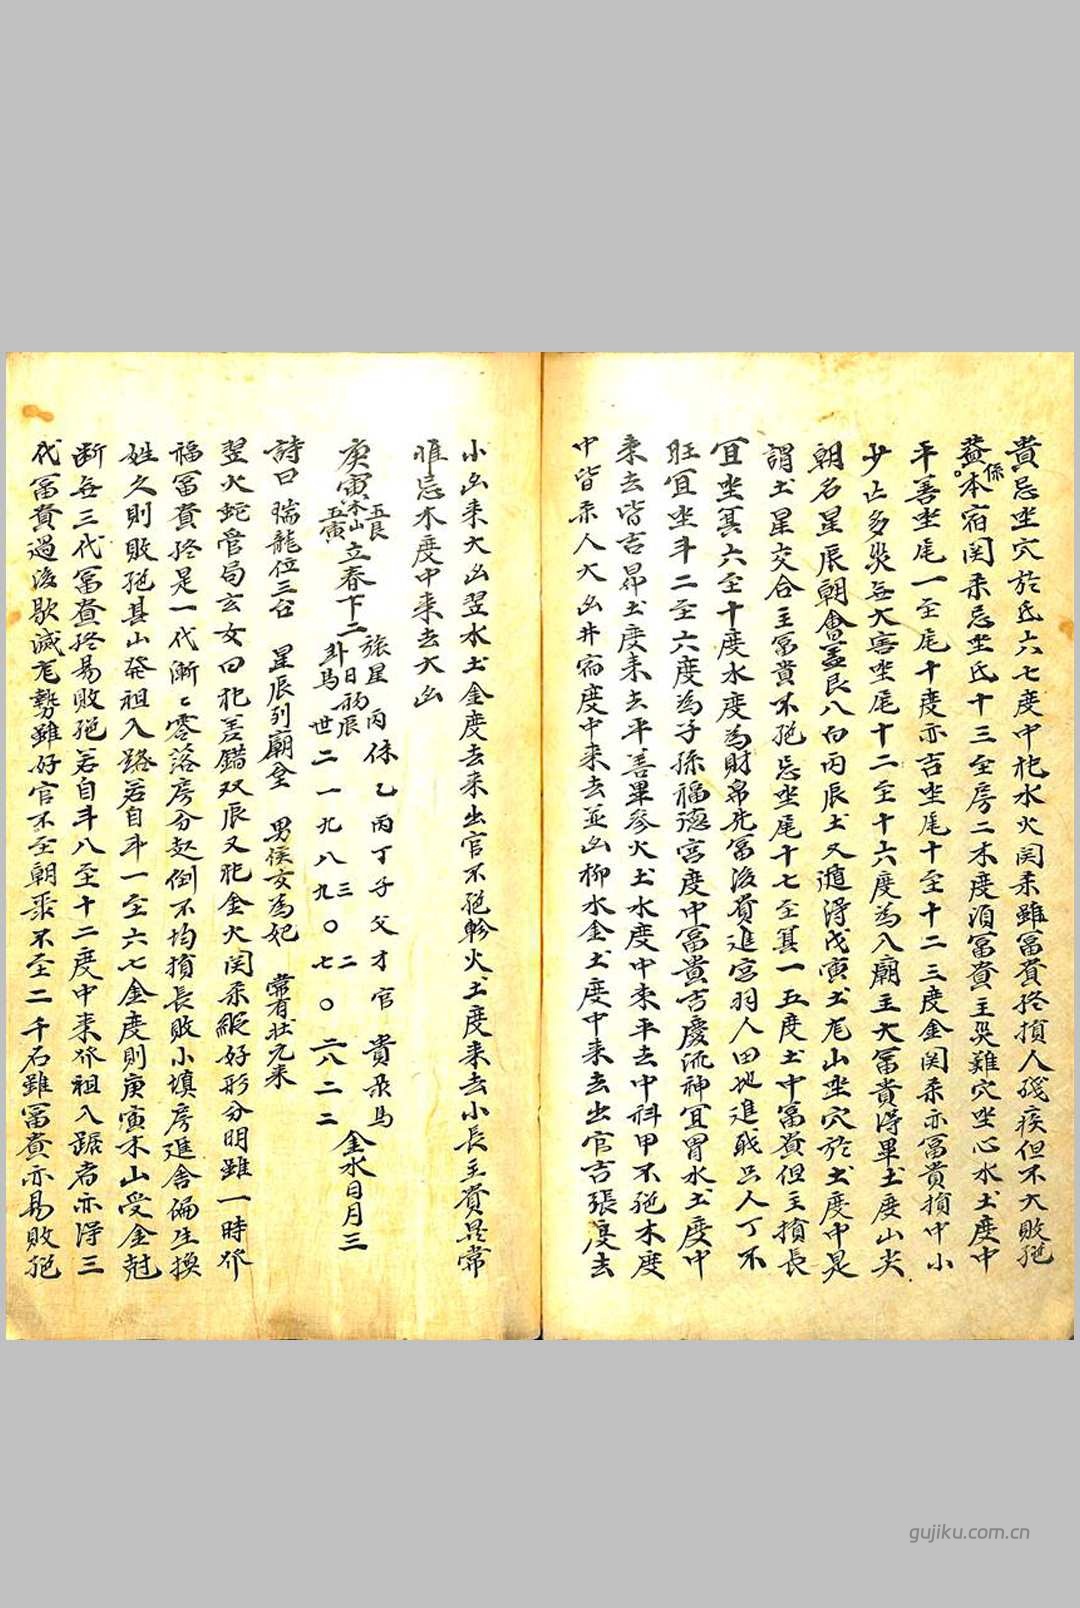 貴忌坐穴於氐六七度中犯水火関柔雖冨貴終損人殘疾但不大敗絕
葢係本宿関柔忌坐氐十三至房二木度須冨貴主災難穴坐心水土度中
平善坐尾一至尾十度亦吉坐尾十至十二三度金関柔亦冨貴損中小
少亡多災無大害坐尾十二至十六度為入廟主大冨貴得畢土度山尖
朝名星辰朝會蓋艮八白丙辰土又随得戊寅土尨山坐穴於土度中是
謂土星交合主冨貴不絕忌坐尾十七至箕一五度土中冨貴但主損長
宜坐箕六至十度水度為財帛先冨後貴進宮羽人田地進戝只人丁不
旺宜坐斗二至六度為子孫福德宮度中冨貴吉慶流神宜胃水土度中
来去皆吉昴土度来去平善畢參火土水度中来平去中科甲不絕木度
中皆柔人大凶井宿度中来去並凶柳水金土度中来去出官吉張度去
小凶来大凶翌水土金度去来出官不絕軫火土度来去小長主貴異常
惟忌木度中来去大凶
庚寅木山五艮五寅立春下二卦馬世二一九八九〇七〇六八二二金水日月三
旅星丙係乙丙丁子父才官貴柔馬
詩曰 瑞龍位三台 星辰列廟全 男侯女為妃 常有状元来
翌火蛇管局玄女曰犯差錯双辰又犯金火関柔縱好形分明雖一時㸃
福冨貴終是一代漸〻零落房分起倒不均損長敗小填房進舍偏生換
姓久則敗絕其山発祖入路若自斗一至六七金度則庚寅木山受金尅
断無三代冨貴終易敗絕若自斗八至十二度中来㸃祖入踞者亦淂三
代冨貴過後歇滅尨勢雖好官不至朝乘不至二千石雖冨貴亦易敗絕
gujiku.com.cn